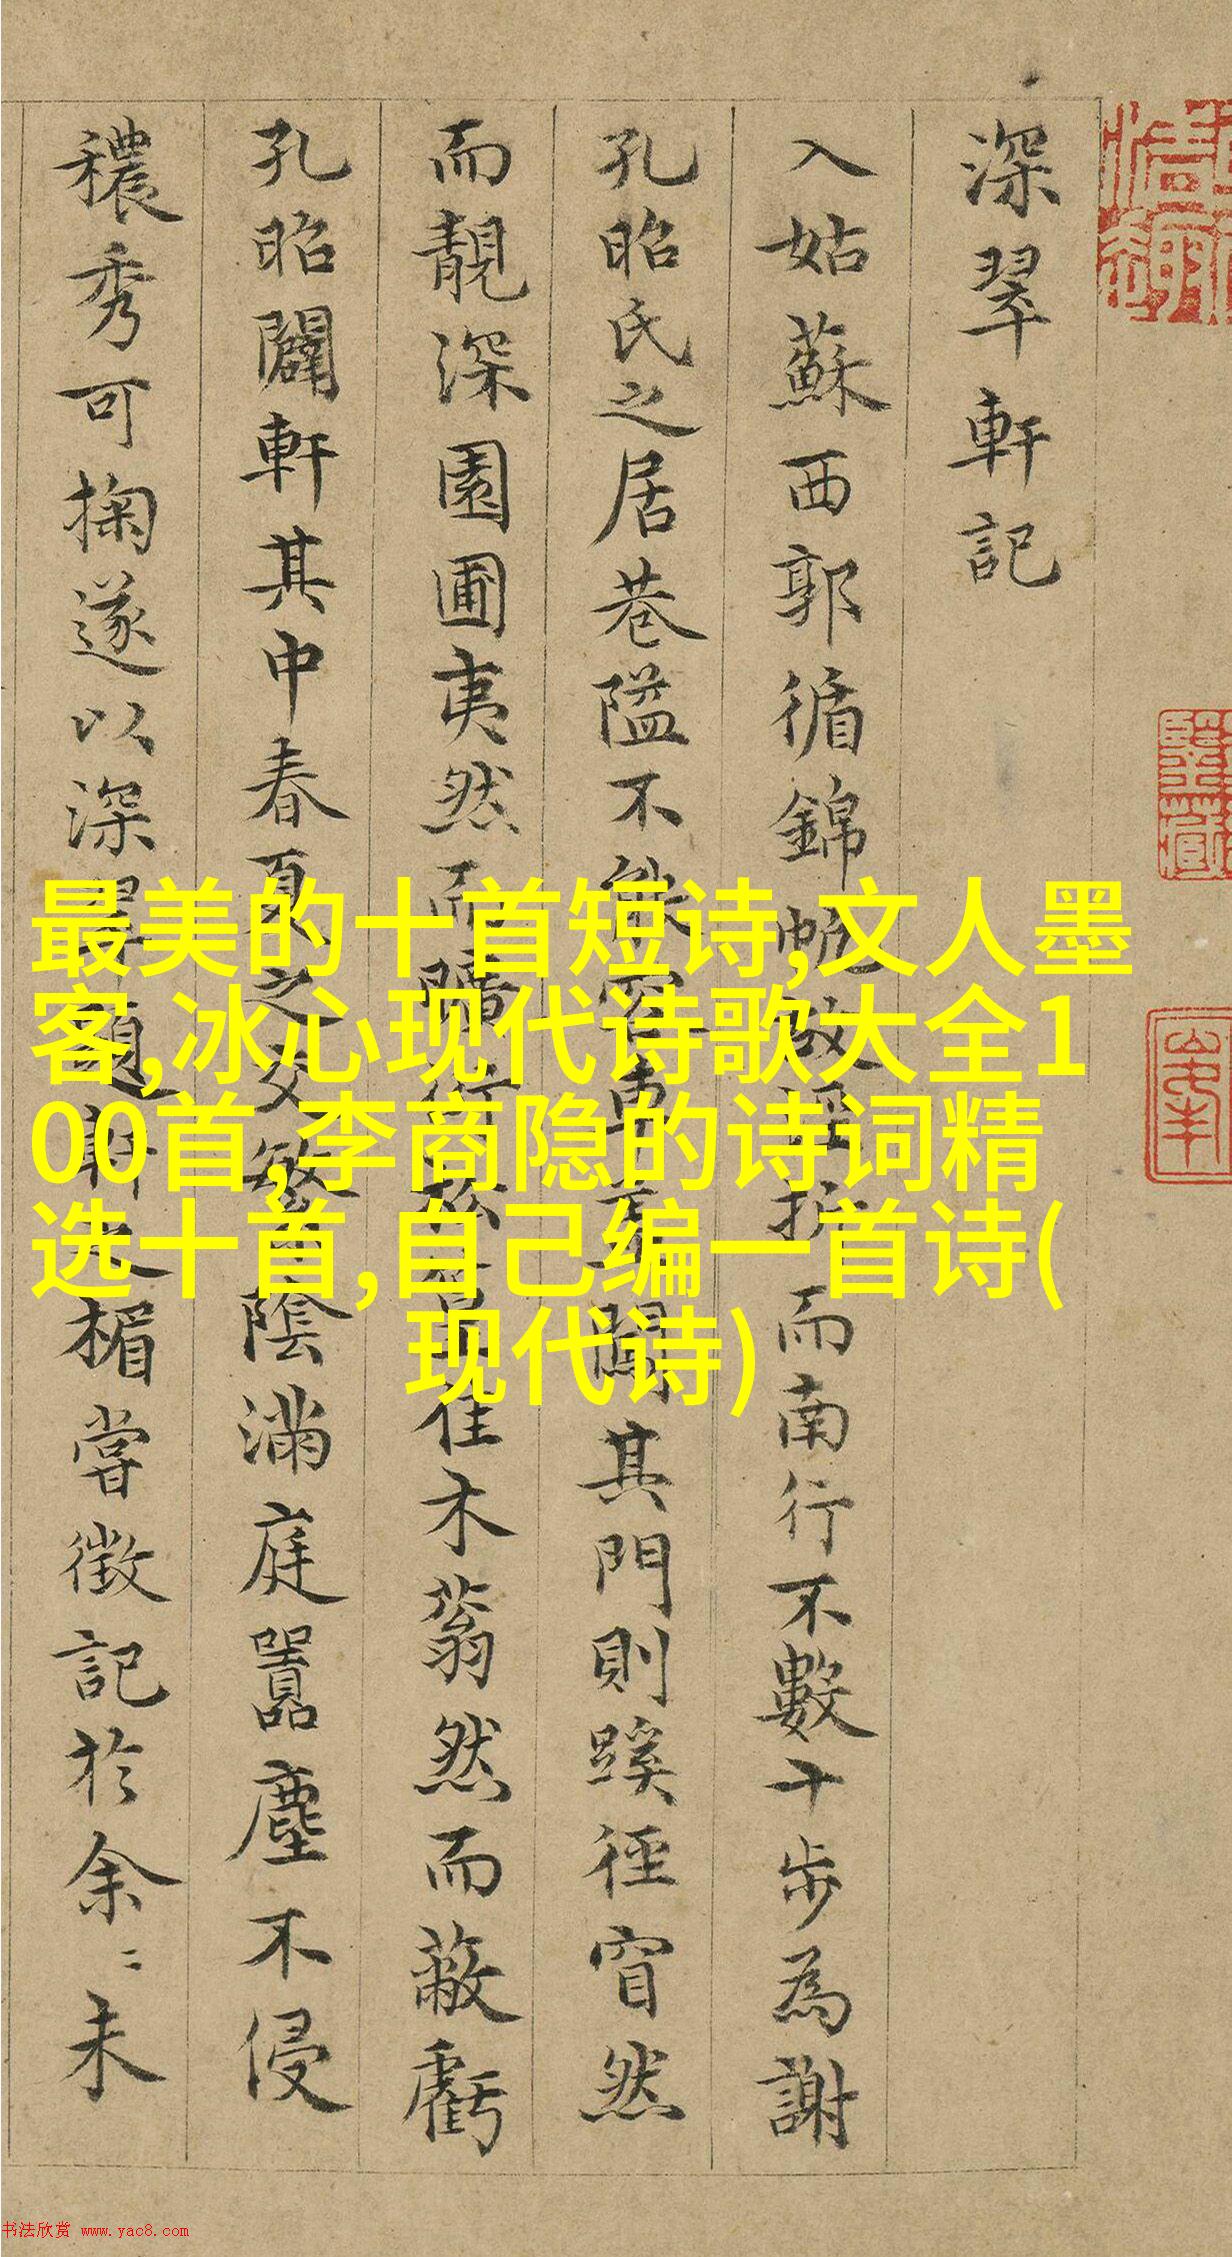 深翠軒記
入姑蘇西郭循錦帆故涇折而南行不數十步為謝
孔昭氏之居巷隘不能容車闖其門則蹊徑窅然
而靚深園圃夷然而曠佳木蓊然而蔽虧
孔昭闢軒其中春夏之交繁陰滿庭囂塵不侵
穠秀可掬遂以深翠題軒之楣嘗徵記於余〻未
最美的十首短诗,文人墨
客,冰心现代诗歌大全1
00首,李商隐的诗词精
选十首,自己编一首诗(
现代诗)
书法欣赏 www.yac8.com